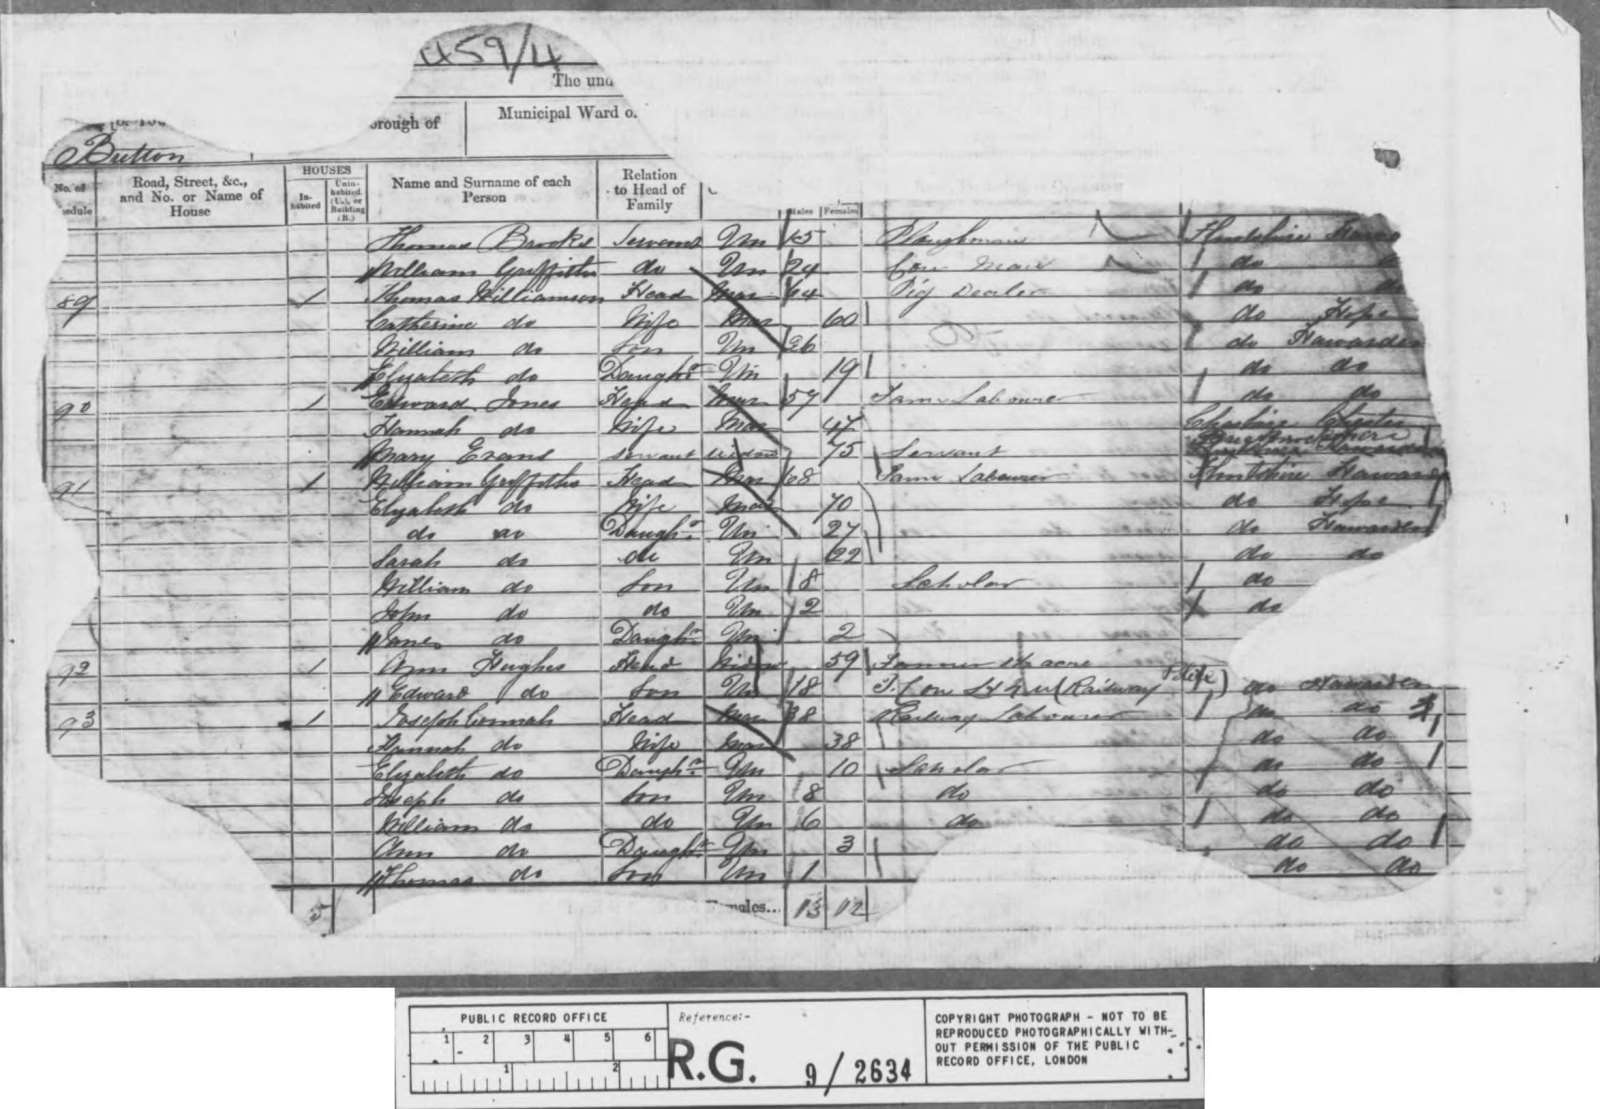 459/4
The und
orough of Municipal Ward o
Button
No. of Schedule Road, Street, &c., and No. or Name of House HOUSES In-habited Unin-habited (U.), or Building (B.) Name and Surname of each Person Relation to Head of Family Males Females
Thomas Brooks Servant Un 15 Ploughman Flintshire
William Griffiths do Un 24 Cow Man do
89 1 Thomas Williamson Head Mar 64 Pig Dealer do
Catherine do Wife Mar 60 do Hope
William do Son Un 26 do Hawarden
Elizabeth do Daughr Un 19 do do
90 1 Edward Jones Head Mar 57 Farm Labourer do do
Hannah do Wife Mar 47 Cheshire Chester
Mary Evans servant widow 75 Servant
91 1 William Griffiths Head Mar 68 Farm Labourer Flintshire Hawarden
Elizabeth do Wife Mar 70 do Hope
do do Daughr Un 27 do Hawarden
Sarah do do Un 22 do do
William do Son Un 8 Scholar do
John do do Un 2 do
Jane do Daughr Un 2
92 1 Ann Hughes Head Widow 59 Farmer acre
Edward do Son Un 18 Railway do Hawarden
93 1 Joseph Connah Head Mar 38 Railway Labourer do do
Hannah do Wife Mar 38 do do
Elizabeth do Daughr Un 10 Scholar do do
Joseph do Son Un 8 do do do
William do do Un 6 do do do
Ann do Daughr Un 3 do do
Thomas do Son Un 1 do do
5 Females... 13 12
PUBLIC RECORD OFFICE
1 2 3 4 5 6
1 2
Reference:-
R.G. 9/2634
COPYRIGHT PHOTOGRAPH - NOT TO BE
REPRODUCED PHOTOGRAPHICALLY WITH-
OUT PERMISSION OF THE PUBLIC
RECORD OFFICE, LONDON